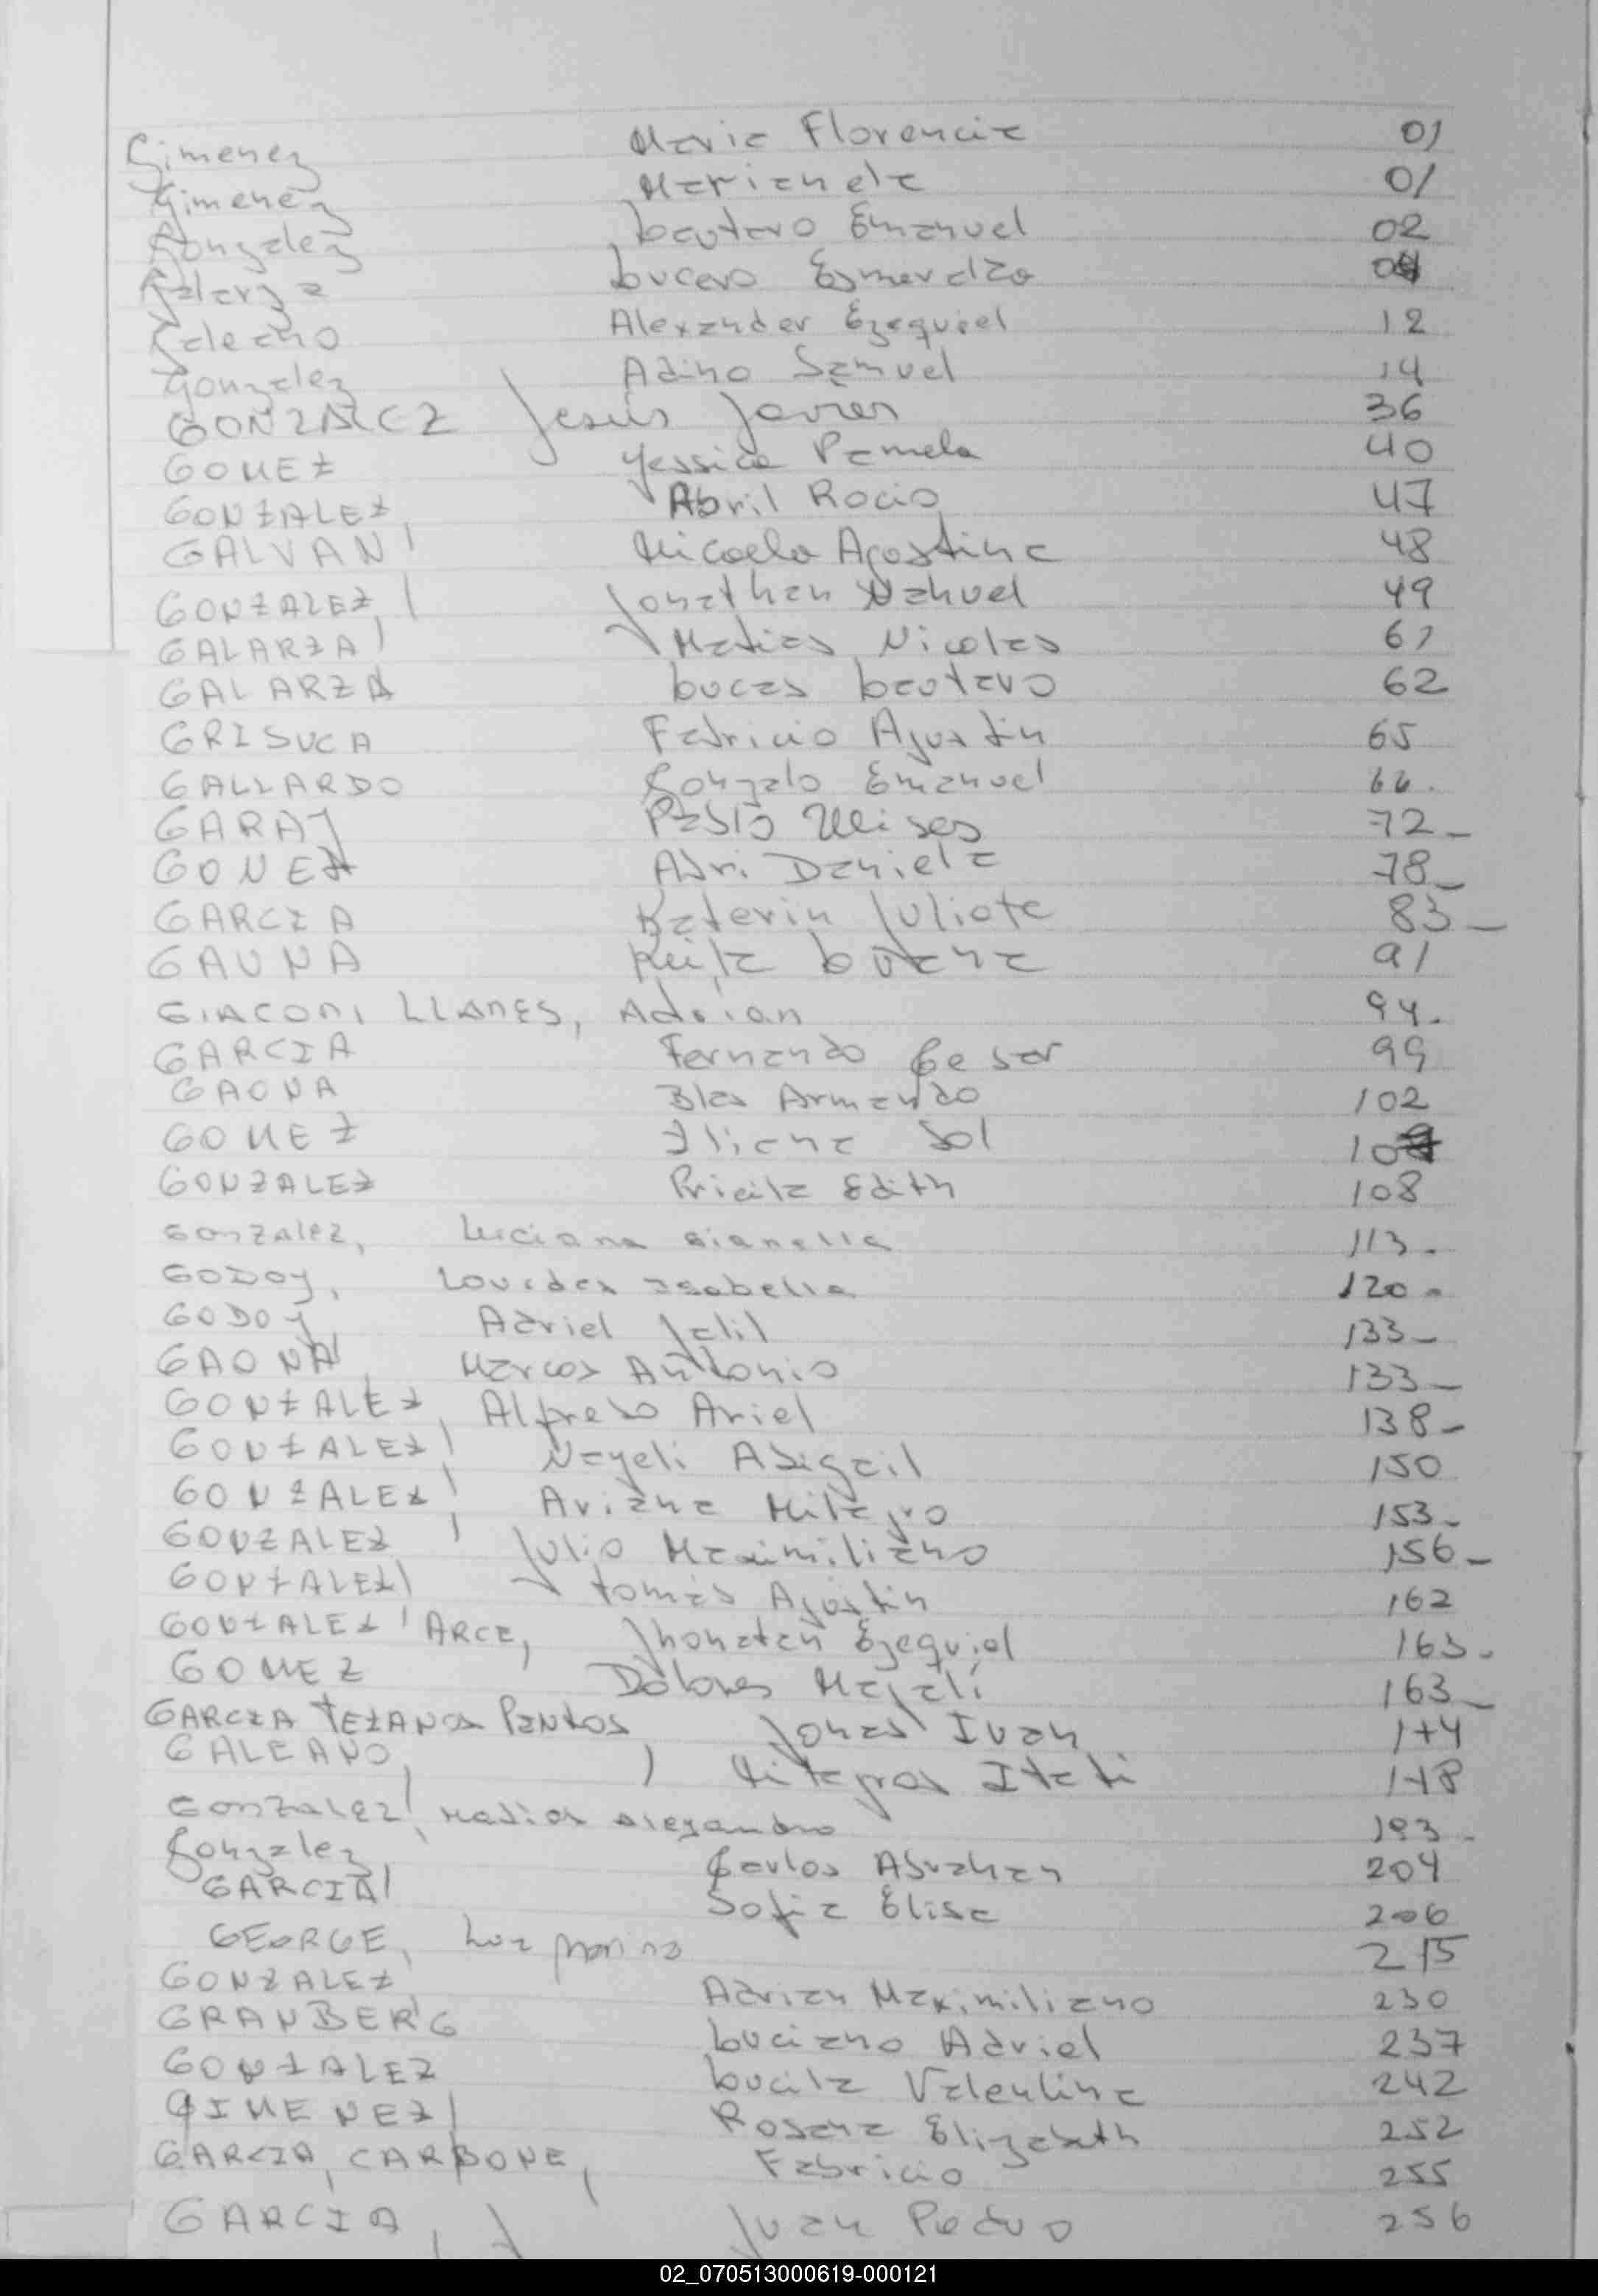 Gimenez Maria Florencia 01
Gimenez Marianela 01
Gonzalez Lautaro Emanuel 02
Galarza Lucero Esmeralda 04
Galeano Alexander Ezequiel 12
Gonzalez Adino Samuel 14
GONZALEZ Jesús Javier 36
GOMEZ Yessica Pamela 40
GONZALEZ, Abril Rocio 47
GALVAN Micaela Agostina 48
GONZALEZ, Jonathan Nahuel 49
GALARZA Matias Nicolas 61
GALARZA Lucas Lautaro 62
GRISUCA Fabricio Agustin 65
GALLARDO Gonzalo Emanuel 66.
GARAY Pablo Ulises 72-
GOMEZ Abri Daniela 78-
GARCIA Katerin Juliote 83-
GAUNA Keila Luana 91
GIACOMI LLANES, Adrian 94.
GARCIA Fernando Cesar 99
GAONA Blas Armando 102
GOMEZ Iliana Sol
GONZALEZ Pricila Edith 108
GONZALEZ, Luciana Gianella 113.
GODOY, Lourdes Isabella 120.
GODOY Adriel Jalil 133-
GAONA Marcos Antonio 133-
GONZALEZ, Alfredo Ariel 138-
GONZALEZ, Nayeli Abigail 150
GONZALEZ, Ariana Milagro 153-
GONZALEZ, Julio Maximiliano 156-
GONZALEZ, Tomas Agustin 162
GONZALEZ ARCE, Jhonatan Ezequiel 163.
GOMEZ Dolores Magali 163-
GARCIA TEZANOS PINTOS, Jonas Ivan 174
GALEANO, Milagros Itati 178
GONZALEZ, Matias Alejandro 193.
Gonzalez, Carlos Abrahan 204
GARCIA Sofia Elisa 206
GEORGE, Luz Marina 215
GONZALEZ, Adrian Maximiliano 230
GRANBERG Luciano Adriel 237
GONZALEZ Lucila Valentina 242
GIMENEZ, Rosana Elizabeth 252
GARCIA, CARBONE, Fabricio 255
GARCIA, Juan Pedro 256
02_070513000619-000121